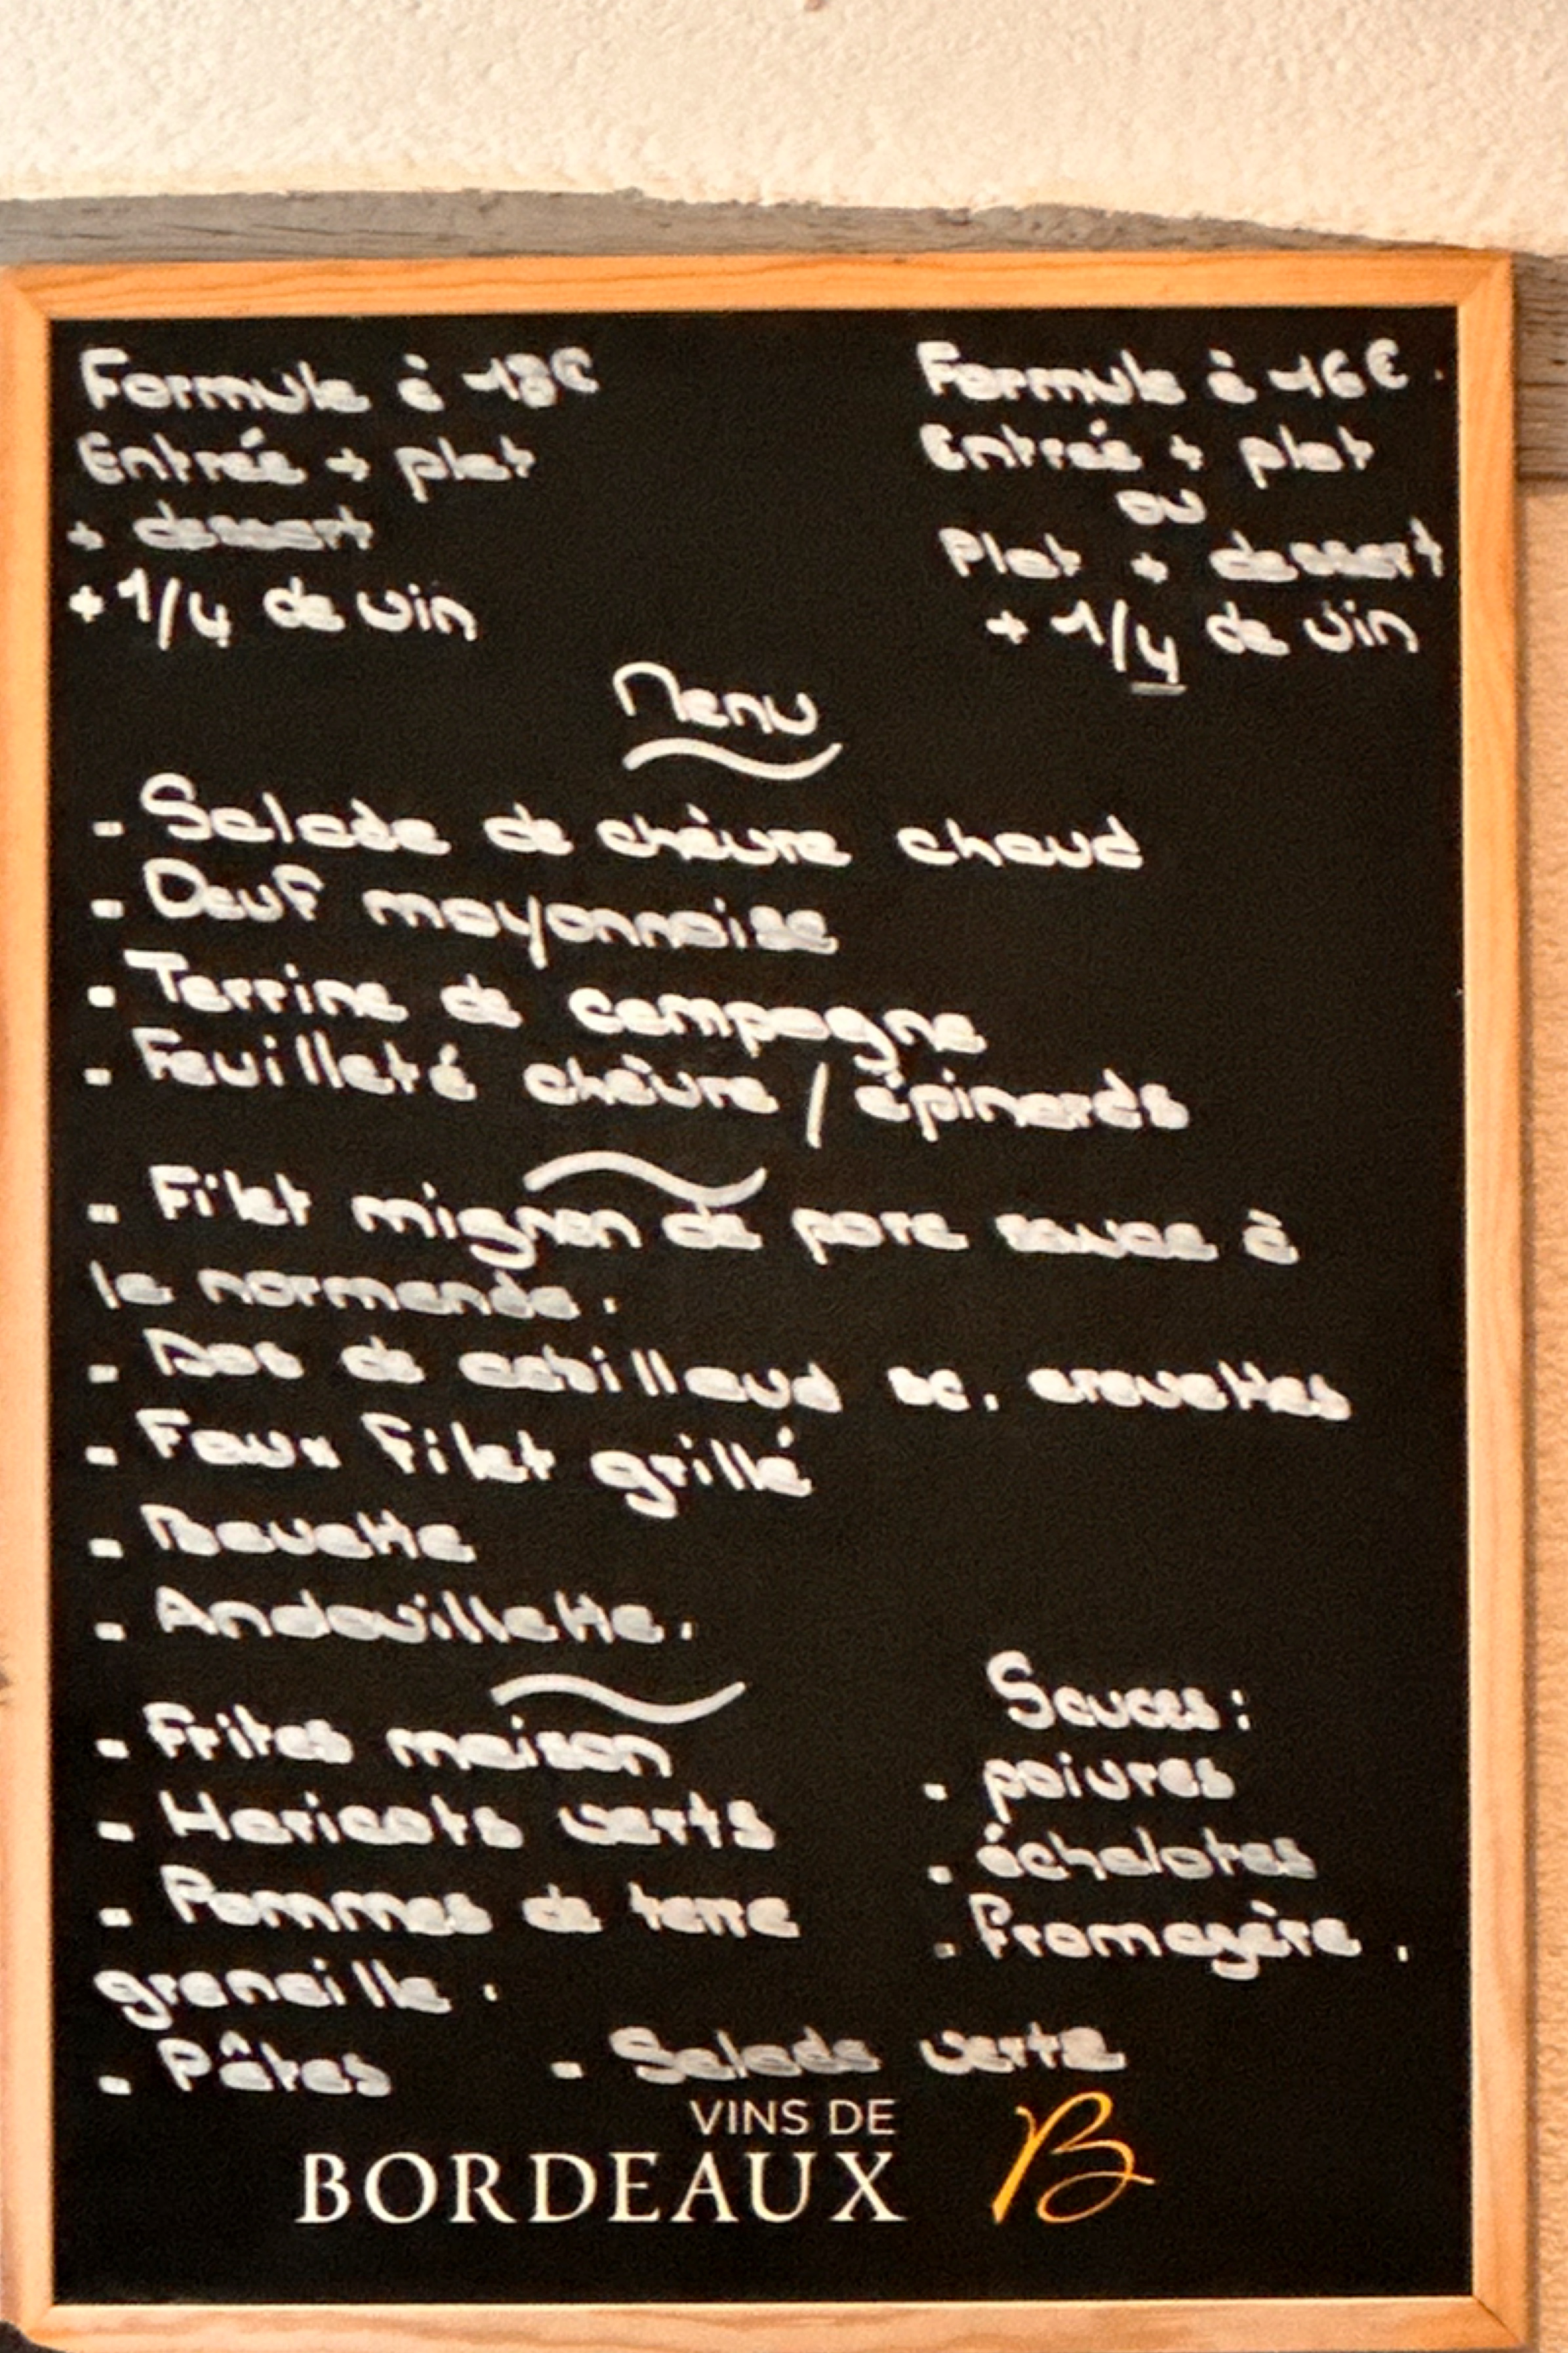 Formule à 18€
Entrée + plat
+ dessert
+ 1/4 de vin
Formule à 16€.
Entrée + plat
ou
Plat + dessert
+ 1/4 de vin
Menu
- Salade de chèvre chaud
- Oeuf mayonnaise
- Terrine de campagne
- Feuilleté chèvre / épinards
- Filet mignon de porc sauce à
la normande.
- Dos de cabillaud sc. crevettes
- Faux filet grillé
- Bavette
- Andouillette.
- Frites maison
- Haricots verts
- Pommes de terre
grenaille.
- Pâtes - Salade verte
Sauces:
- poivres
- échalotes
- fromagère.
VINS DE
BORDEAUX B